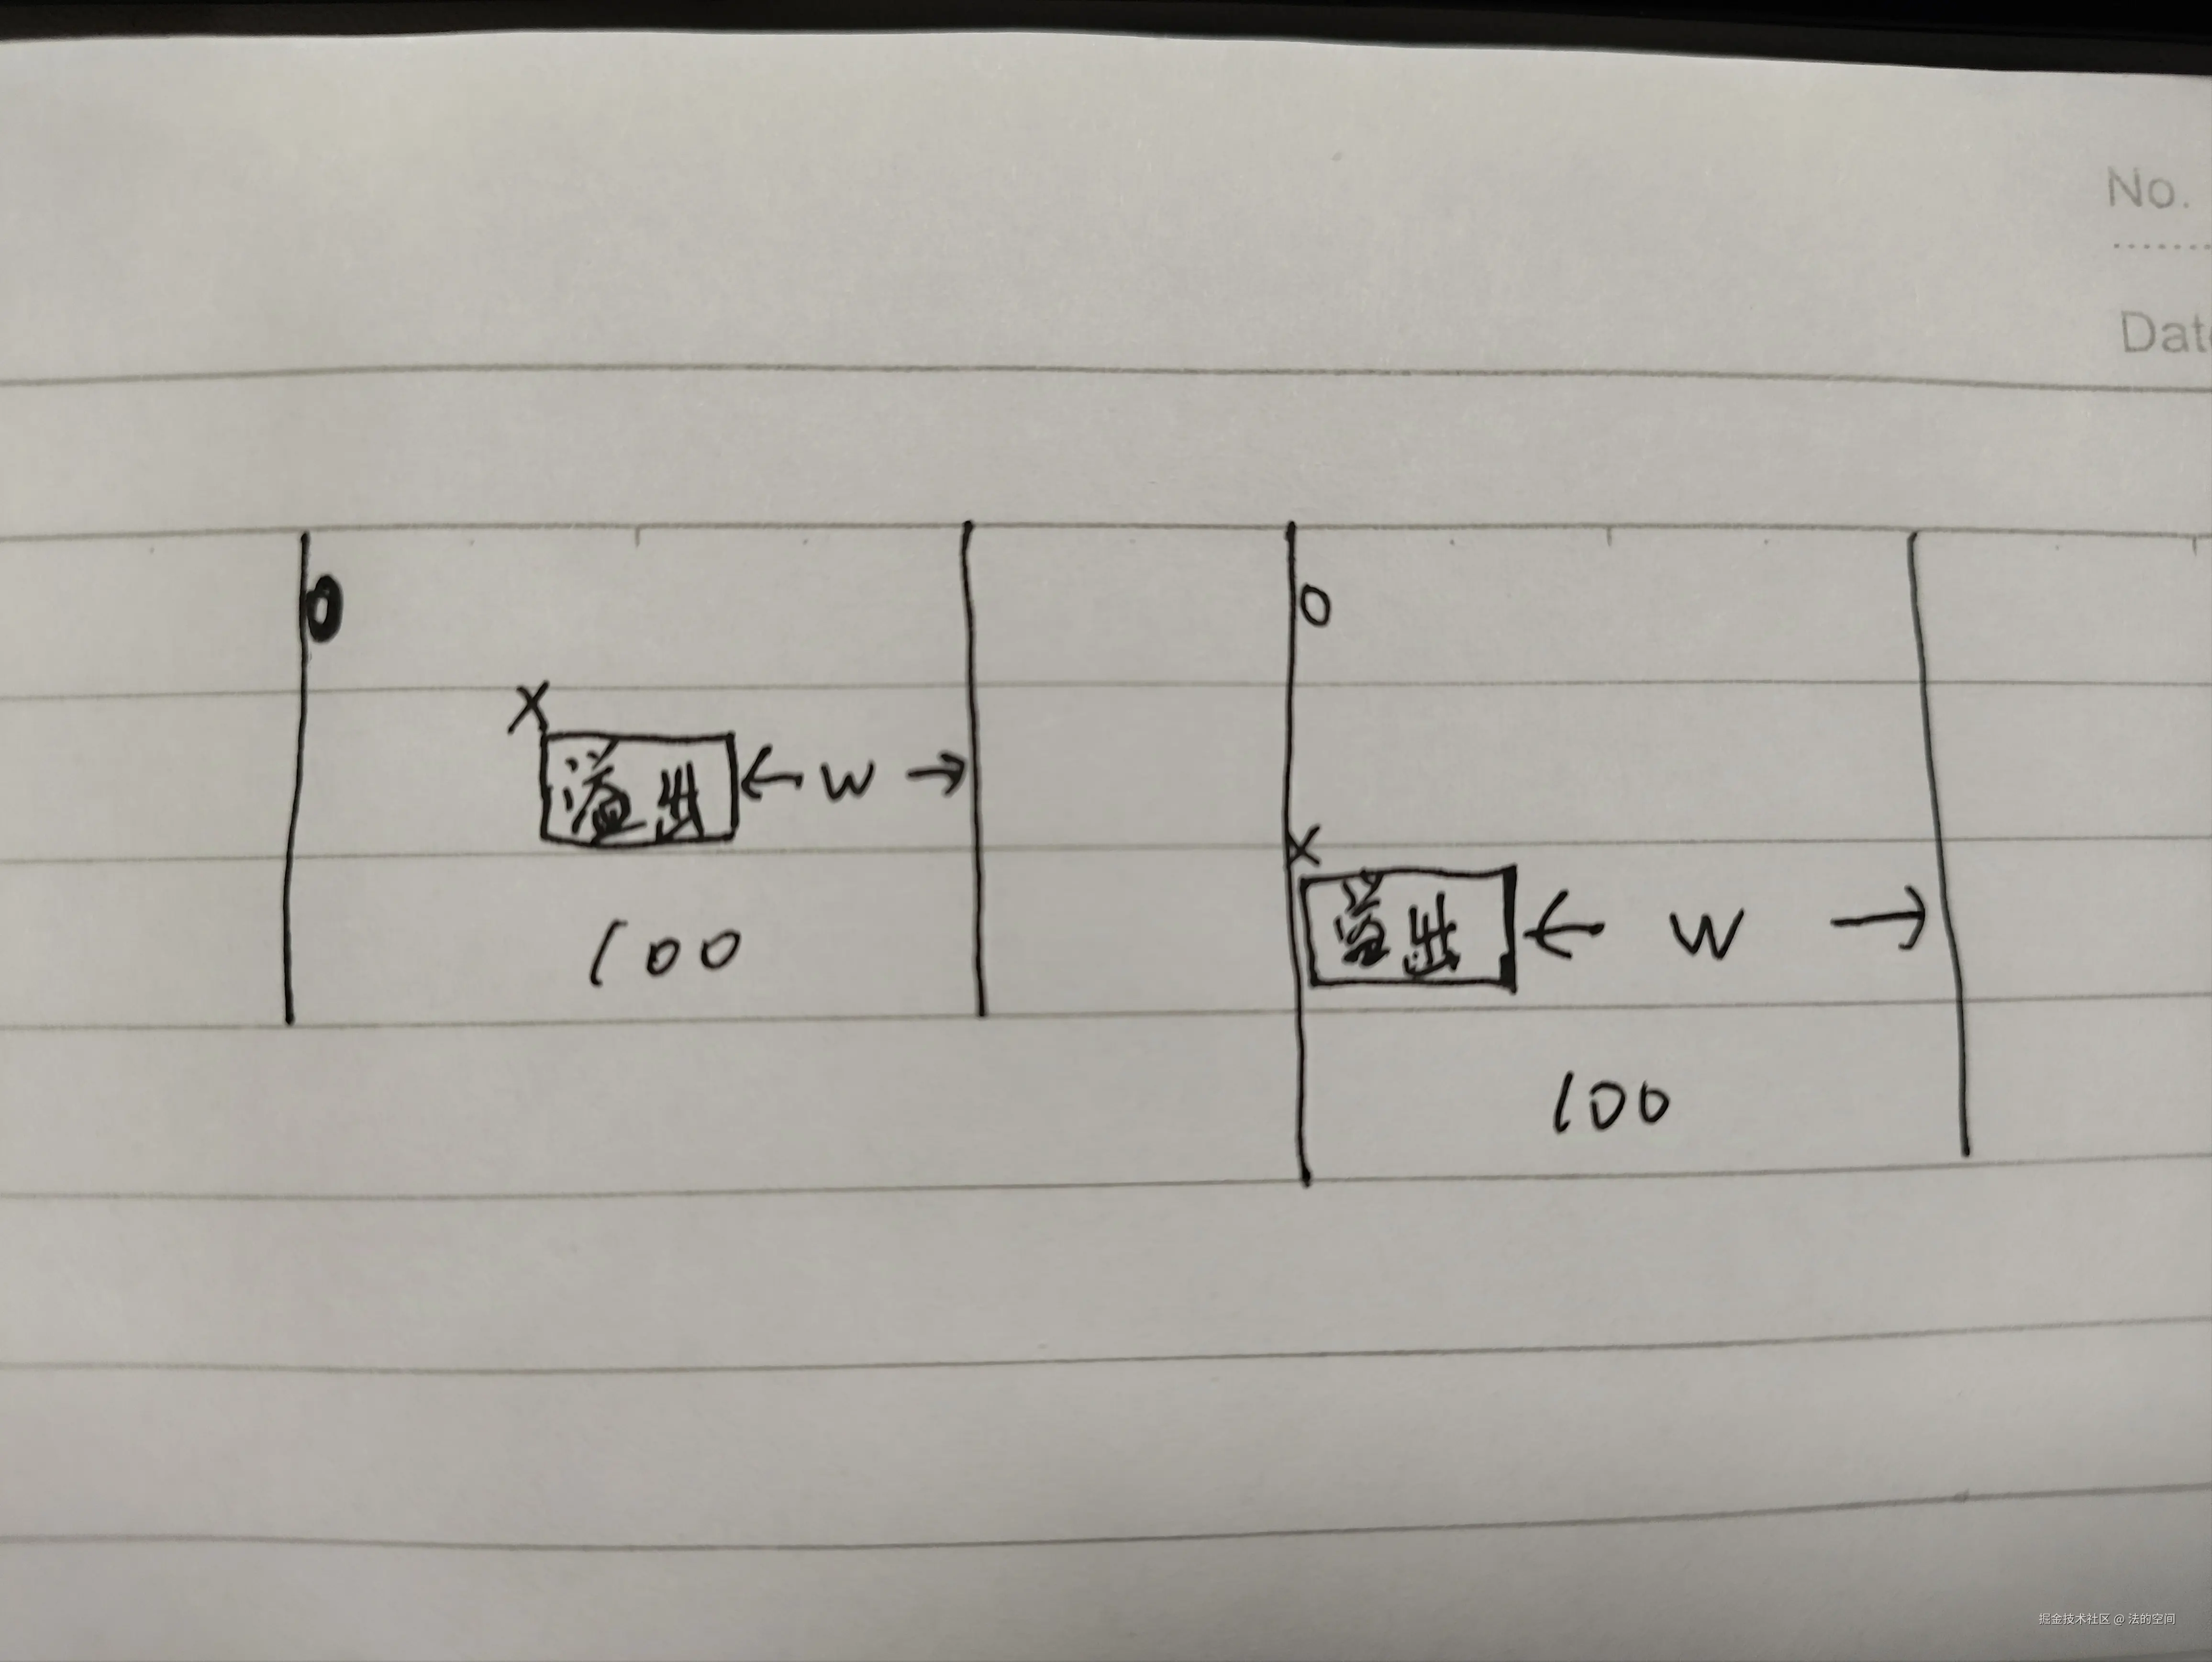 No.
Dat
0
0
X
溢出
← W →
X
溢出
← W →
100
100
掘金技术社区 @ 法的空间